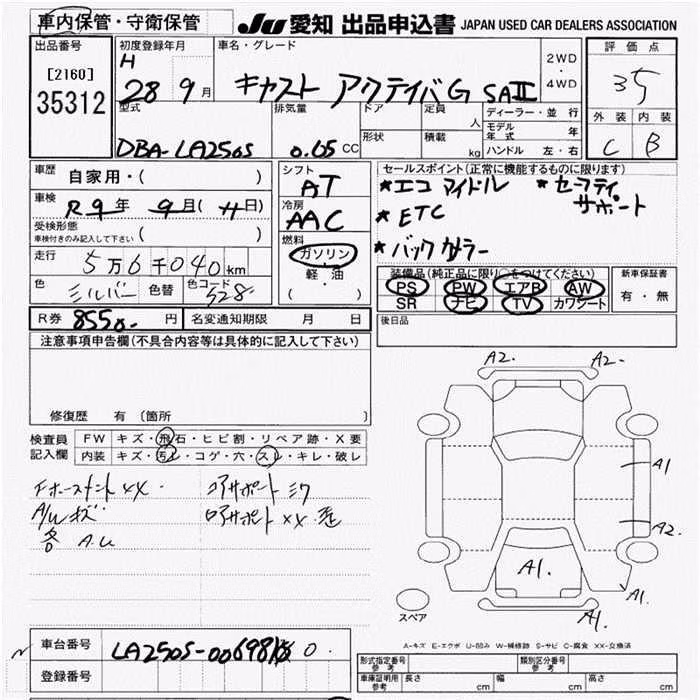 車内保管・守衛保管
JU 愛知 出品申込書 JAPAN USED CAR DEALERS ASSOCIATION
出品番号 初度登録年月 車名・グレード 評価点
[2160] H 2WD
35312 28 9月 キャスト アクティバG SAⅡ ・ 35
4WD
型式 排気量 ドア 定員 人 ディーラー・並行 外装 内装
モデル年式 年
DBA-LA250S 0.65 CC 形状 積載 kg ハンドル 左・右 C B
車歴 自家用・( ) シフト セールスポイント(正常に機能するものに限ります)
AT *エコアイドル *セーフティサポート
車検 R9年 9月(11日) 冷房 *ETC
受検形態 ( ) AAC *バックカラー
車検付きのみ記入して下さい 燃料
走行 5万6千040km ガソリン 装備品(純正品に限り○をつけてください) 新車保証書
軽・油 PS PW エアB AW 有・無
色 シルバー 色替 色コード S28 (・) SR ナビ TV カワシート
R券 8550- 円 名変通知期限 月 日 後日品
注意事項申告欄(不具合内容等は具体的に記入して下さい)
修復歴 有 〔箇所 〕
A2. A2-
検査員 FW キズ・飛石・ヒビ割・リペア跡・X要
記入欄 内装 キズ・汚レ・コゲ・穴・スレ・キレ・破レ
A1
XX
A/Wキズ XX
A2
各 A.U
A1.
A1
スペア A1.
A-キズ E-エクボ U-凹み W-補修跡 S-サビ C-腐食 XX-交換済
車台番号 LA250S-00698 0
形式指定番号 類別区分番号
参考 参考
登録番号 車庫証明用 長さ 幅 高さ
参考 cm cm cm